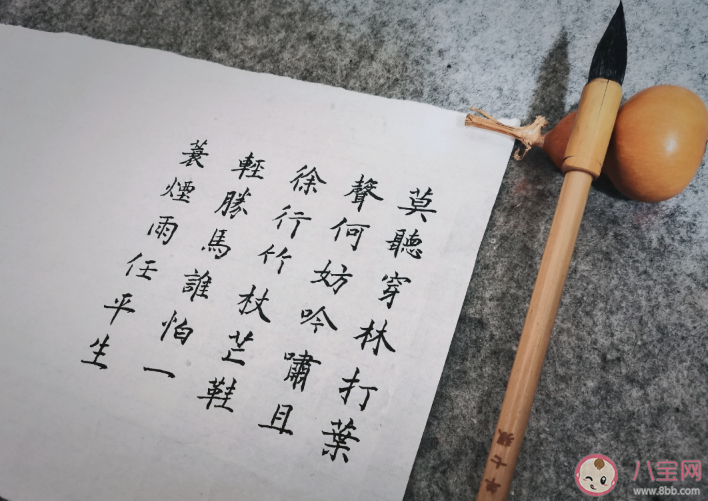 莫聽穿林打葉
聲何妨吟嘯且
徐行竹杖芒鞋
輕勝馬誰怕一
蓑煙雨任平生
七
八宝网
www.8bb.com